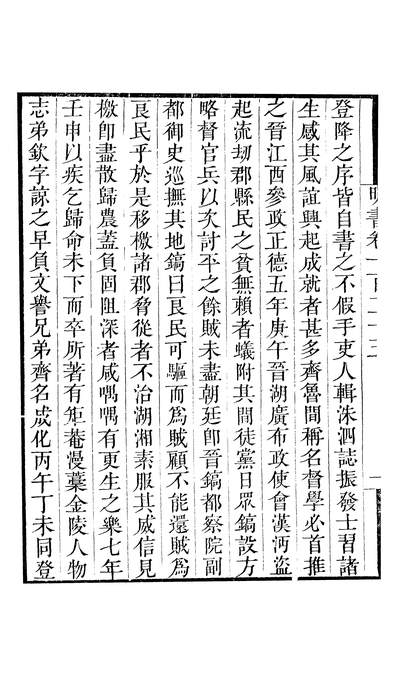 明書卷一百二十三
登降之序皆自書之不假手吏人輯洙泗誌振發士習諸
生感其風誼興起成就者甚多齊魯間稱名督學必首推
之晉江西參政正德五年庚午晉湖廣布政使會漢沔盜
起流刼郡縣民之貧無賴者蟻附其間徒黨日眾鎬設方
略督官兵以次討平之餘賊未盡朝廷卽晉鎬都察院副
都御史巡撫其地鎬曰良民可驅而爲賊顧不能還賊爲
良民乎於是移檄諸郡脅從者不治湖湘素服其威信見
檄卽盡散歸農蓋負固阻深者咸喁喁有更生之樂七年
壬申以疾乞歸命未下而卒所著有矩菴漫藁金陵人物
志弟欽字諒之早負文譽兄弟齊名成化丙午丁未同登